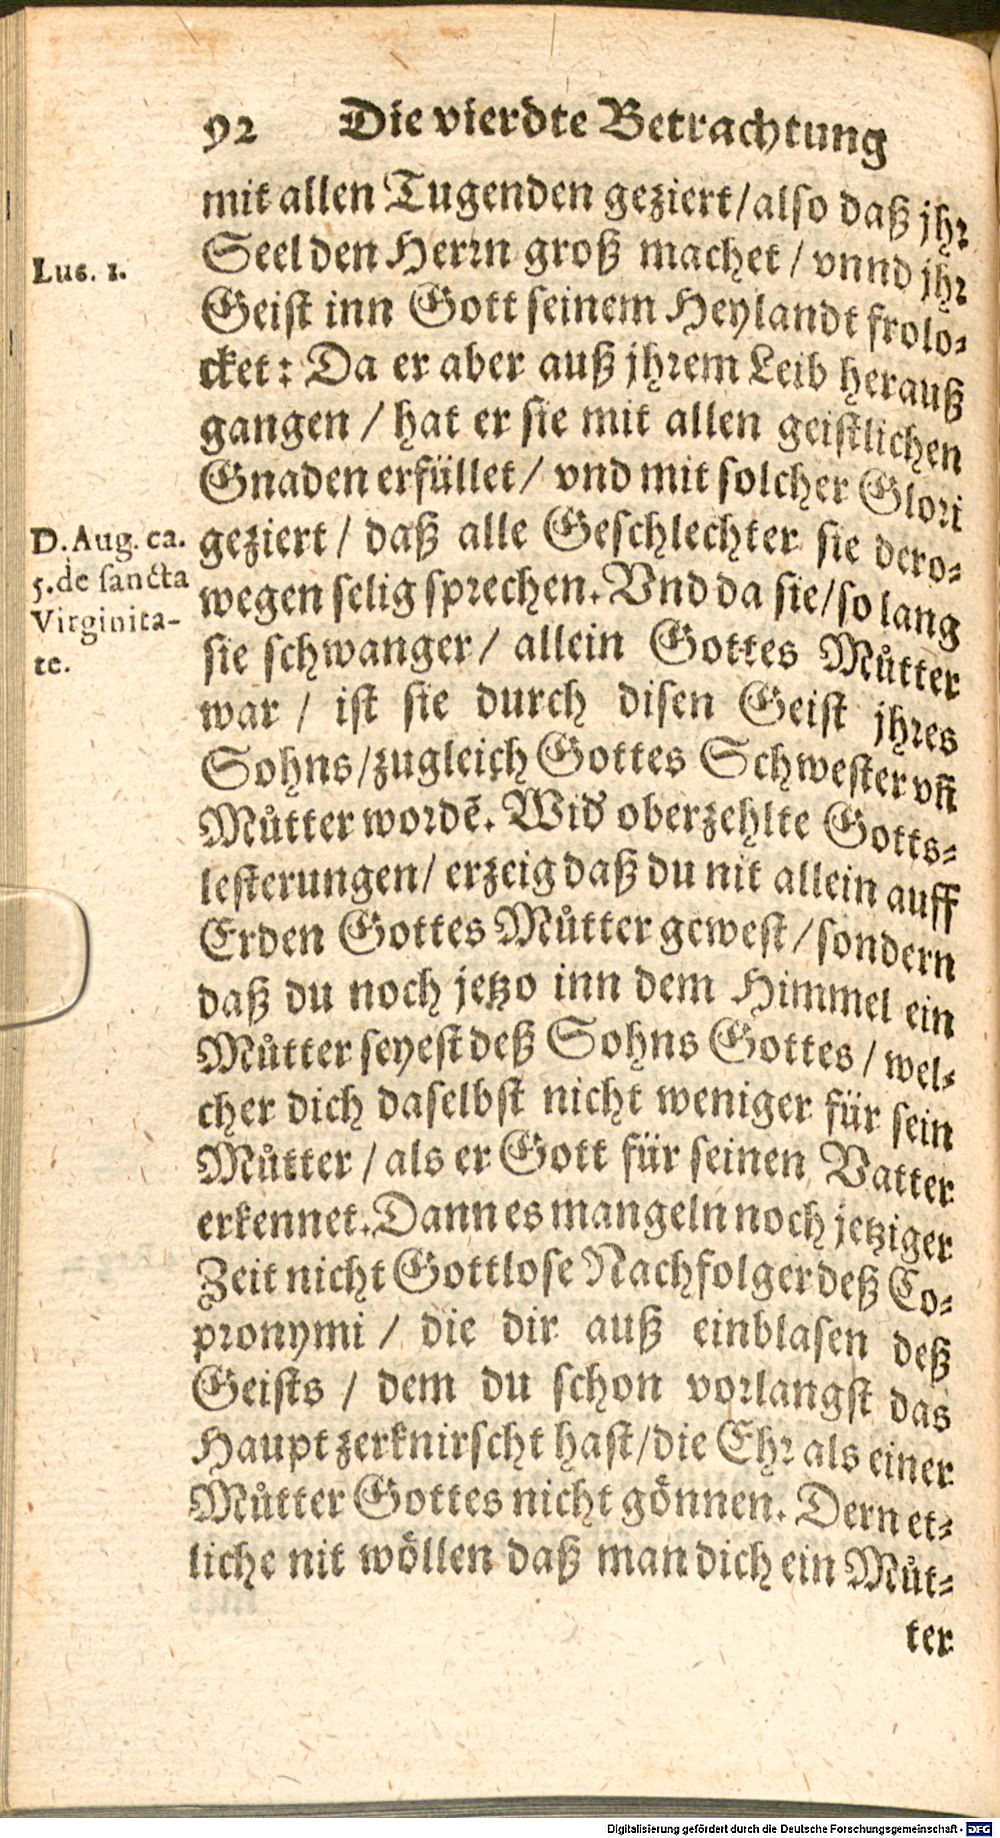 92 Die vierdte Betrachtung
mit allen Tugenden geziert/also daß jhr
Seel den Herrn groß machet / vnnd jhr
Luc. 1.
Geist inn Gott seinem Heylandt frolo-
cket: Da er aber auß jhrem Leib herauß
gangen / hat er sie mit allen geistlichen
Gnaden erfüllet/ vnd mit solcher Glori
geziert / daß alle Geschlechter sie dero-
D. Aug. ca.
5. de sancta
Virginita-
te.
wegen selig sprechen. Vnd da sie/so lang
sie schwanger/ allein Gottes Můtter
war / ist sie durch disen Geist jhres
Sohns/zugleich Gottes Schwester vñ
Můtter wordẽ. Wid' oberzehlte Gotts-
lesterungen/ erzeig daß du nit allein auff
Erden Gottes Můtter gewest/sondern
daß du noch jetzo inn dem Himmel ein
Můtter seyest deß Sohns Gottes/ wel-
cher dich daselbst nicht weniger für sein
Můtter / als er Gott für seinen Vatter
erkennet. Dann es mangeln noch jetziger
Zeit nicht Gottlose Nachfolger deß Co-
pronymi / die dir auß einblasen deß
Geists / dem du schon vorlangst das
Haupt zerknirscht hast/die Ehr als einer
Můtter Gottes nicht gönnen. Dern et-
liche nit wöllen daß man dich ein Můt-
ter
Digitalisierung gefördert durch die Deutsche Forschungsgemeinschaft - DFG